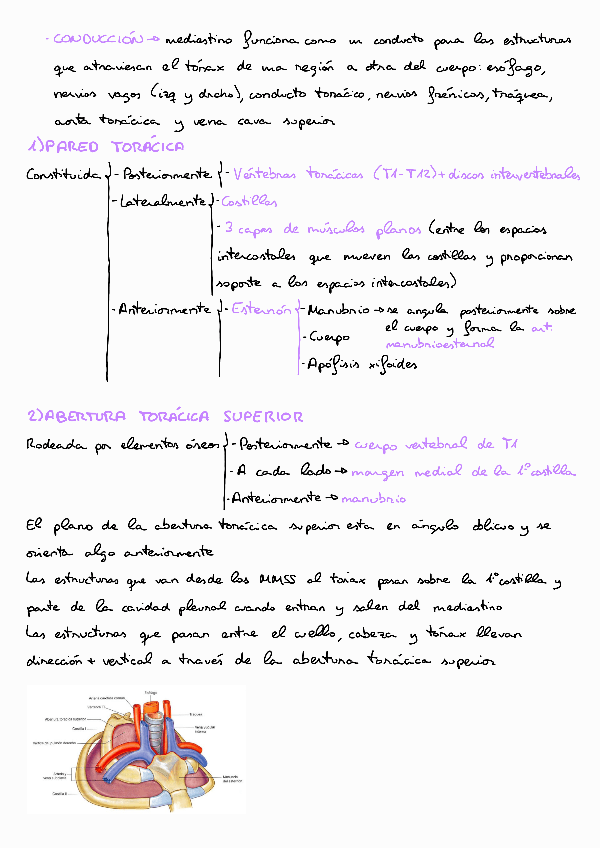 · CONDUCCIÓN → mediastino funciona como un conducto para las estructuras
que atraviesan el tórax de una región a otra del cuerpo: esófago,
nervios vagos (izq y drcho), conducto torácico, nervios frénicos, tráquea,
aorta torácica y vena cava superior
1) PARED TORÁCICA
Constituida - Posteriormente - Vértebras torácicas (T1-T12) + discos intervertebrales
- Lateralmente - Costillas
- 3 capas de músculos planos (entre los espacios
intercostales que mueven las costillas y proporcionan
soporte a los espacios intercostales)
- Anteriormente - Esternón - Manubrio → se angula posteriormente sobre
el cuerpo y forma la art.
manubrioesternal
- Cuerpo
- Apófisis xifoides
2) ABERTURA TORÁCICA SUPERIOR
Rodeada por elementos óseos - Posteriormente → cuerpo vertebral de T1
- A cada lado → margen medial de la 1º costilla
- Anteriormente → manubrio
El plano de la abertura torácica superior esta en ángulo oblicuo y se
orienta algo anteriormente
Las estructuras que van desde los MMSS al torax pasan sobre la 1º costilla y
parte de la cavidad pleural cuando entran y salen del mediastino
Las estructuras que pasan entre el cuello, cabeza y tórax llevan
dirección + vertical a través de la abertura torácica superior
Esófago
Tráquea
Abertura torácica superior
Costilla I
Costilla II